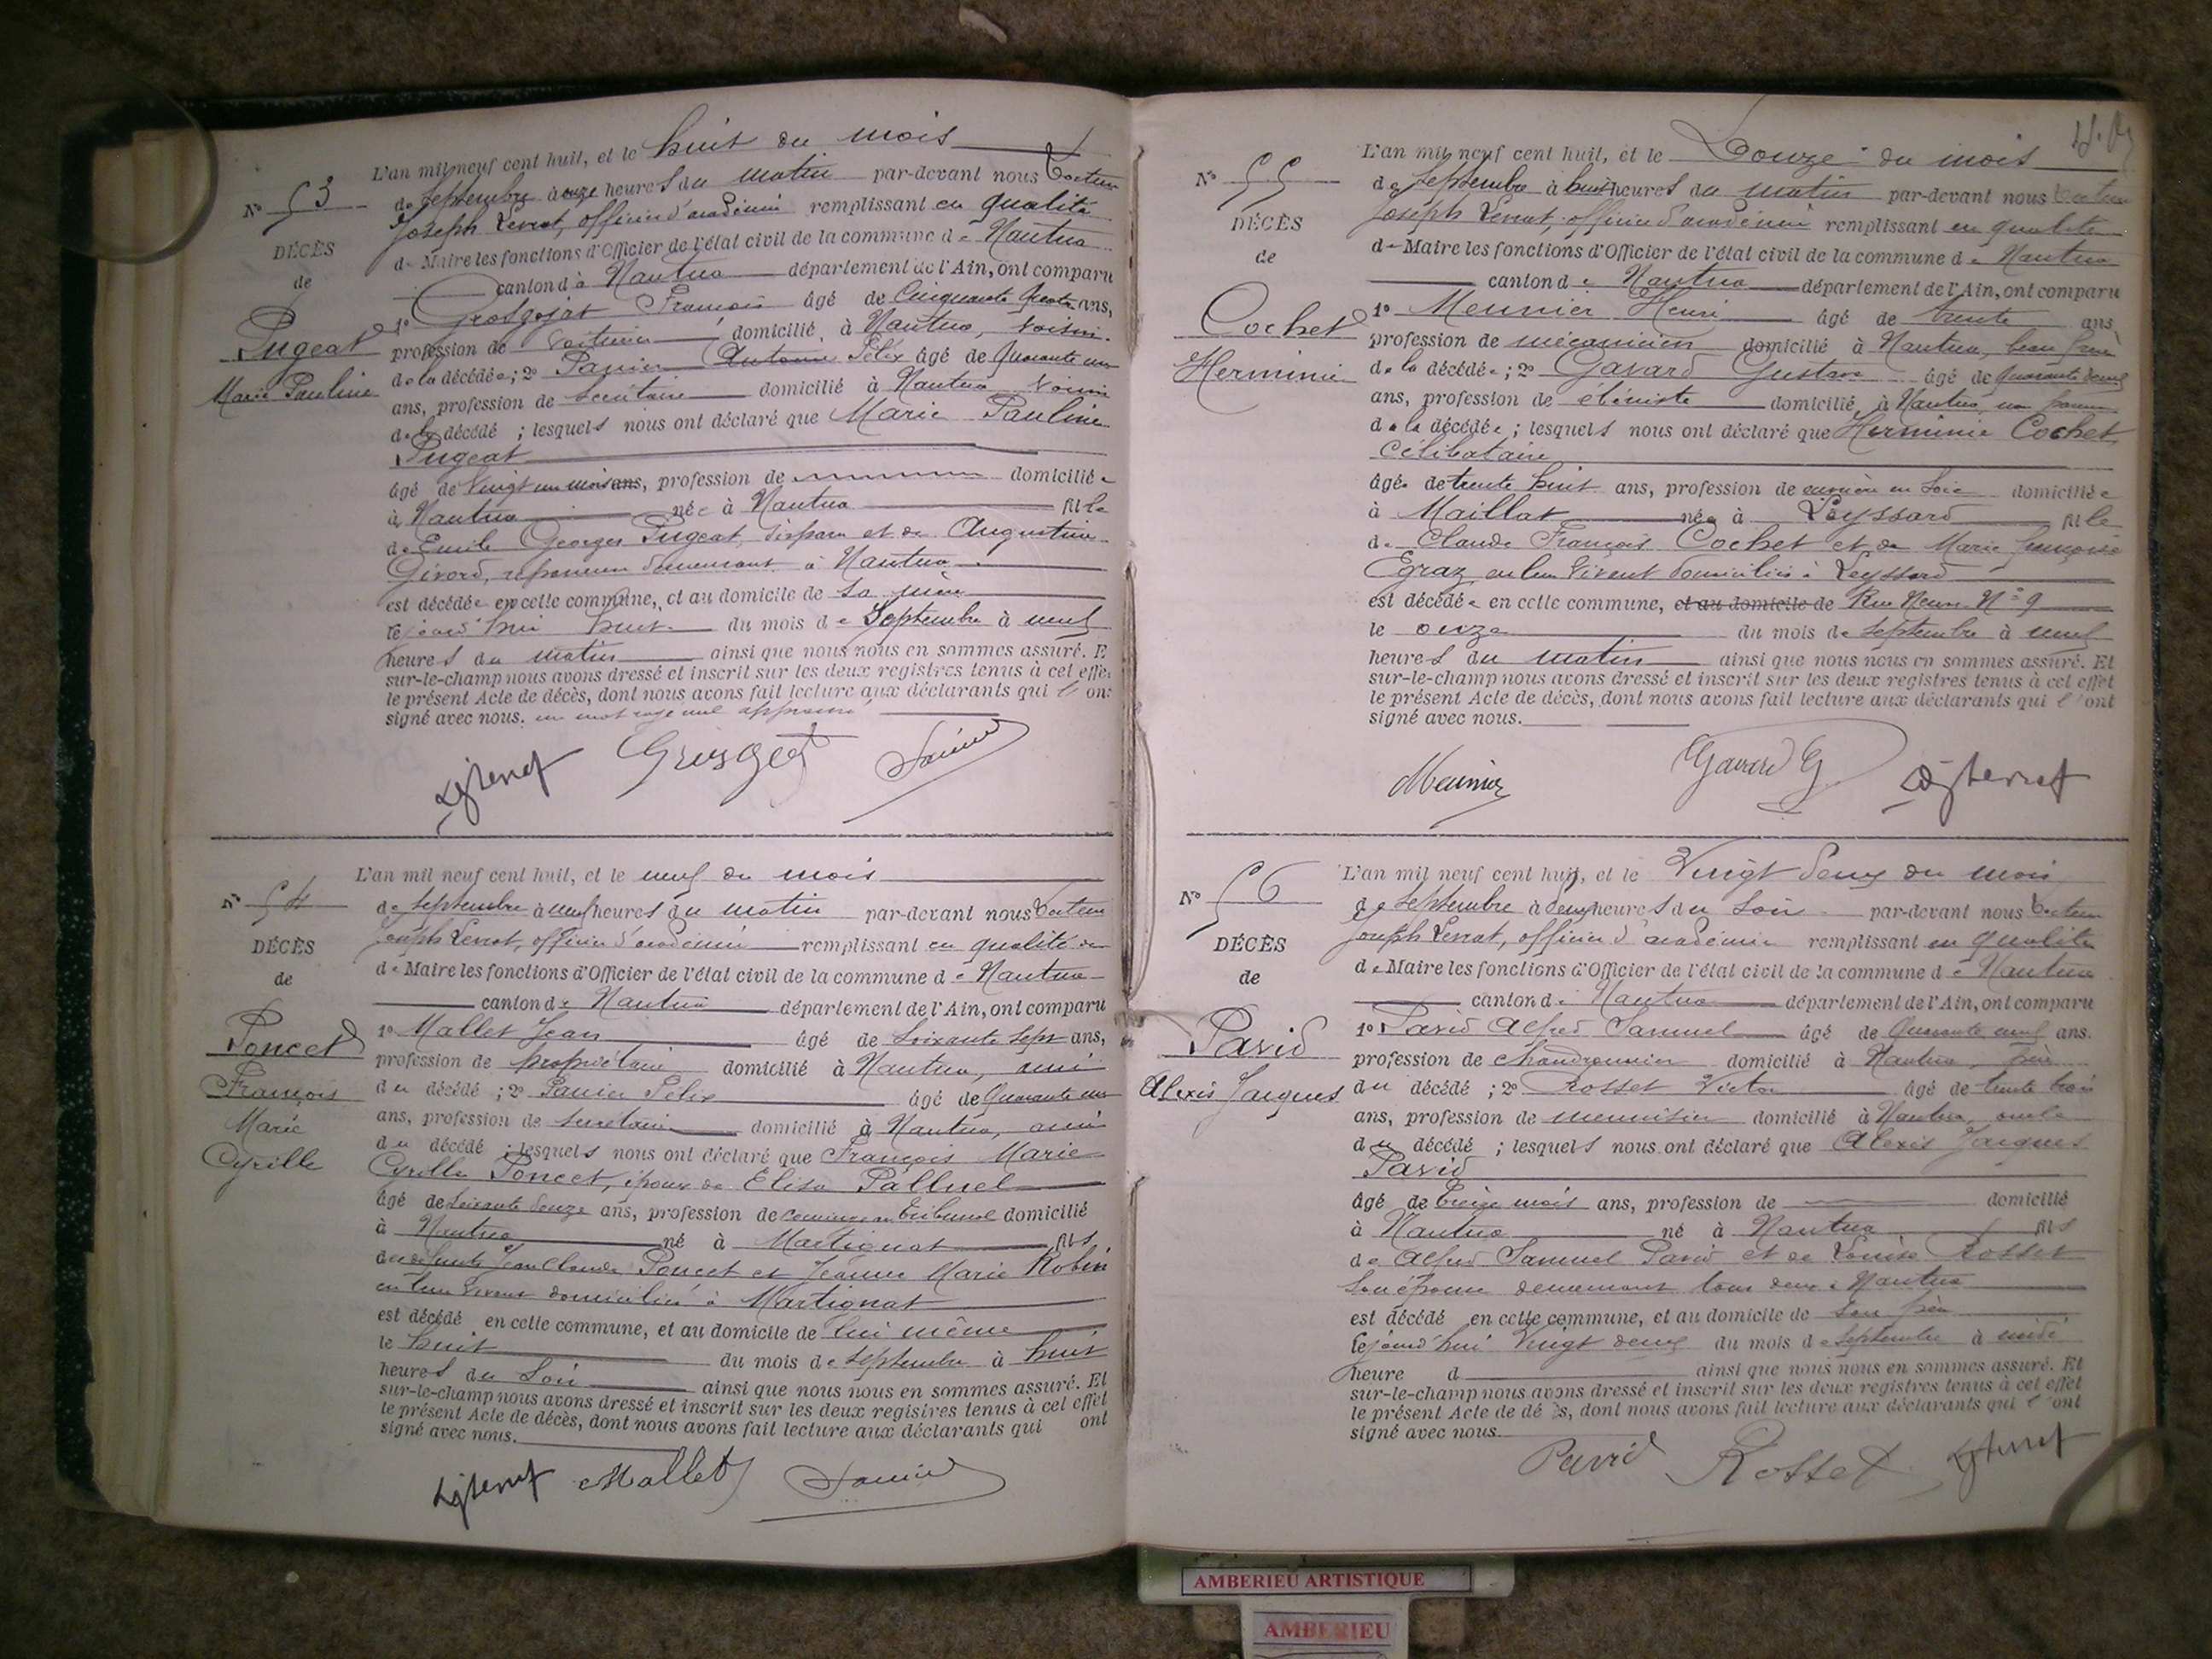 L'an mil neuf cent huit, et le huit du mois
N° 53
de Septembre à onze heures du matin par-devant nous Docteur
Joseph Verrat, officier d'académie remplissant en qualité
DÉCÈS
de Maire les fonctions d'Officier de l'état civil de la commune de Nantua
de
canton de Nantua département de l'Ain, ont comparu
1° Grosgojat François âgé de Cinquante quatre ans,
Pugeat
profession de voiturier domicilié à Nantua, voisin
Marie Pauline
de la décédée; 2° Panier Antoine Félix âgé de Quarante un
ans, profession de secrétaire domicilié à Nantua voisin
de la décédé ; lesquels nous ont déclaré que Marie Pauline
Pugeat
âgé de Vingt un mois ans, profession de domiciliée
à Nantua née à Nantua fille
de Emile Georges Pugeat, disparu et de Augustine
Girord, demeurant à Nantua
est décédée en cette commune, et au domicile de sa mère
le jourd'hui huit du mois de Septembre à neuf
heures du matin ainsi que nous nous en sommes assuré. E
sur-le-champ nous avons dressé et inscrit sur les deux registres tenus à cet effe
le présent Acte de décès, dont nous avons fait lecture aux déclarants qui l'ont
signé avec nous. un mot rayé nul approuvé
L'an mil neuf cent huit, et le neuf du mois
N° 54
de Septembre à neuf heures du matin par-devant nous Docteur
Joseph Verrat, officier d'académie remplissant en qualité
DÉCÈS
de Maire les fonctions d'Officier de l'état civil de la commune de Nantua
de
canton de Nantua département de l'Ain, ont comparu
Poncet
1° Mallet Jean âgé de Soixante sept ans,
profession de propriétaire domicilié à Nantua, ami
François
du décédé ; 2° Panier Félix âgé de Quarante un
Marie
ans, profession de secrétaire domicilié à Nantua, ami
Cyrille
du décédé ; lesquels nous ont déclaré que François Marie
Cyrille Poncet, époux de Elisa Palluel
âgé de Soixante douze ans, profession de tribunal domicilié
à Nantua né à Martignat fils
de défunts Jean Claude Poncet et Jeanne Marie Robin
en leur vivant domiciliés à Martignat
est décédé en cette commune, et au domicile de lui même
le huit du mois de Septembre à huit
heures du Soir ainsi que nous nous en sommes assuré. Et
sur-le-champ nous avons dressé et inscrit sur les deux registres tenus à cet effet
le présent Acte de décès, dont nous avons fait lecture aux déclarants qui ont
signé avec nous.
Mallet
L'an mil neuf cent huit, et le Douze du mois
N° 55
de Septembre à huit heures du matin par-devant nous Docteur
Joseph Verrat, officier d'académie remplissant en qualité
DÉCÈS
de Maire les fonctions d'Officier de l'état civil de la commune de Nantua
de
canton de Nantua département de l'Ain, ont comparu
Cochet
1° Meunier Henri âgé de trente ans
profession de mécanicien domicilié à Nantua, beau frère
Herminie
de la décédée ; 2° Gavard Gustave âgé de Quarante deux
ans, profession de ébéniste domicilié à Nantua, non parent
de la décédée ; lesquels nous ont déclaré que Herminie Cochet
Célibataire
âgée de trente huit ans, profession de ouvrière en Soie domiciliée
à Maillat née à Leyssard fille
de Claude François Cochet et de Marie Françoise
Egraz en leur vivant domiciliés à Leyssard
est décédée en cette commune, et au domicile de Rue Neuve N° 9
le onze du mois de Septembre à neuf
heures du matin ainsi que nous nous en sommes assuré. Et
sur-le-champ nous avons dressé et inscrit sur les deux registres tenus à cet effet
le présent Acte de décès, dont nous avons fait lecture aux déclarants qui l'ont
signé avec nous.
Meunier Gavard G
L'an mil neuf cent huit, et le Vingt deux du mois
N° 56
de Septembre à deux heures du Soir par-devant nous Docteur
Joseph Verrat, officier d'académie remplissant en qualité
DÉCÈS
de Maire les fonctions d'Officier de l'état civil de la commune de Nantua
de
canton de Nantua département de l'Ain, ont comparu
Pavid
1° Pavid Alfred Samuel âgé de Quarante neuf ans.
profession de chaudronnier domicilié à Nantua, père
Alexis Jacques
du décédé ; 2° Rosset Victor âgé de trente trois
ans, profession de menuisier domicilié à Nantua, oncle
du décédé ; lesquels nous ont déclaré que Alexis Jacques
Pavid
âgé de treize mois ans, profession de domicilié
à Nantua né à Nantua fils
de Alfred Samuel Pavid et de Louise Rosset
son épouse demeurant tous deux à Nantua
est décédé en cette commune, et au domicile de son père
le jourd'hui Vingt deux du mois de Septembre à midi
heure d ainsi que nous nous en sommes assuré. Et
sur-le-champ nous avons dressé et inscrit sur les deux registres tenus à cet effet
le présent Acte de décès, dont nous avons fait lecture aux déclarants qui l'ont
signé avec nous.
Pavid Rosset
AMBERIEU ARTISTIQUE
AMBERIEU